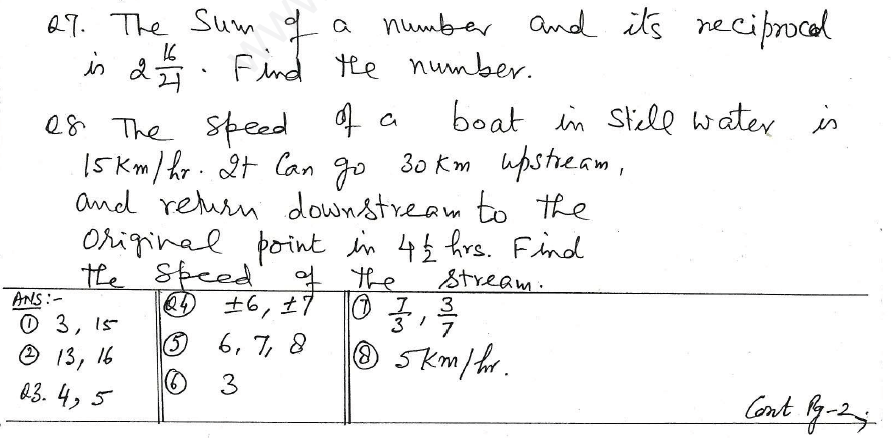 Q7. The Sum of a number and its reciprocal
is 2 16/21. Find the number.
Q8 The speed of a boat in still water is
15 Km/hr. It Can go 30 Km upstream,
and return downstream to the
Original point in 4 1/2 hrs. Find
the speed of the stream.
ANS:-
① 3, 15
② 13, 16
Q3. 4, 5
Q4) ±6, ±7
⑤ 6, 7, 8
⑥ 3
⑦ 7/3, 3/7
⑧ 5 Km/hr.
Cont Pg-2;